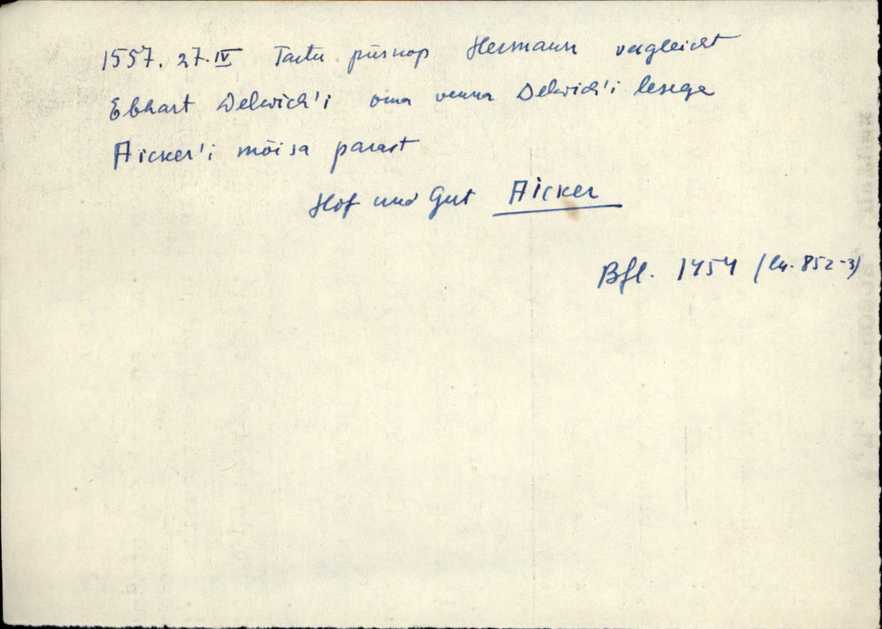 1557. 27.IV Tartu piiskop Hermann vergleicht
Ebhart Delwich'i oma venna Delwich'i lesega
Aicker'i mõisa pärast
Hof und Gut Aicker
Bfl. 1454 (lk. 852-3)